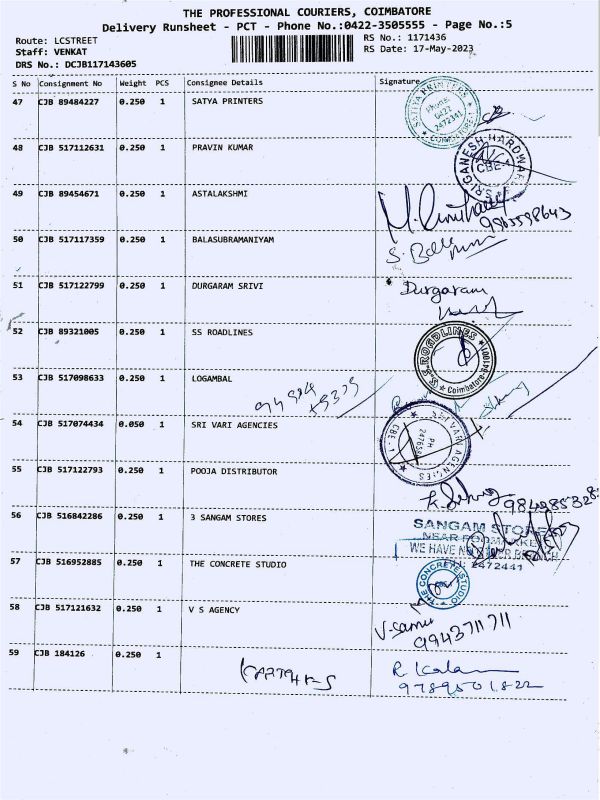 THE PROFESSIONAL COURIERS, COIMBATORE
Delivery Runsheet - PCT - Phone No.:0422-3505555 - Page No.:5
Route: LCSTREET
RS No.: 1171436
Staff: VENKAT
RS Date: 17-May-2023
DRS No.: DCJB117143605
S No Consignment No Weight PCS Consignee Details Signature
47 CJB 89484227 0.250 1 SATYA PRINTERS
SATYA PRINTERS
Phone:
0422
2472341
COIMBATORE
48 CJB 517112631 0.250 1 PRAVIN KUMAR
SRI GANESH HARDWARE
CBE-1
49 CJB 89454671 0.250 1 ASTALAKSHMI
50 CJB 517117359 0.250 1 BALASUBRAMANIYAM
51 CJB 517122799 0.250 1 DURGARAM SRIVI
Durgaram
52 CJB 89321005 0.250 1 SS ROADLINES
Coimbatore-641001
53 CJB 517098633 0.250 1 LOGAMBAL
54 CJB 517074434 0.050 1 SRI VARI AGENCIES
SRI VARI AGENCIES
CBE-1
PH
55 CJB 517122793 0.250 1 POOJA DISTRIBUTOR
56 CJB 516842286 0.250 1 3 SANGAM STORES
SANGAM STORES
NEAR POOMARKET
WE HAVE NO OTHER BRANCH
2472441
57 CJB 516952885 0.250 1 THE CONCRETE STUDIO
THE CONCRETE STUDIO
58 CJB 517121632 0.250 1 V S AGENCY
9943711711
59 CJB 184126 0.250 1
9789501822